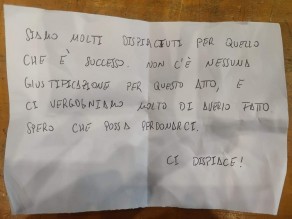 SIAMO MOLTI DISPIACIUTI PER QUELLO
CHE È SUCCESSO. NON C'È NESSUNA
GIUSTIFICAZIONE PER QUESTO ATTO, E
CI VERGOGNIAMO MOLTO DI AVERLO FATTO
SPERO CHE POSSA PERDONARCI.
CI DISPIACE!